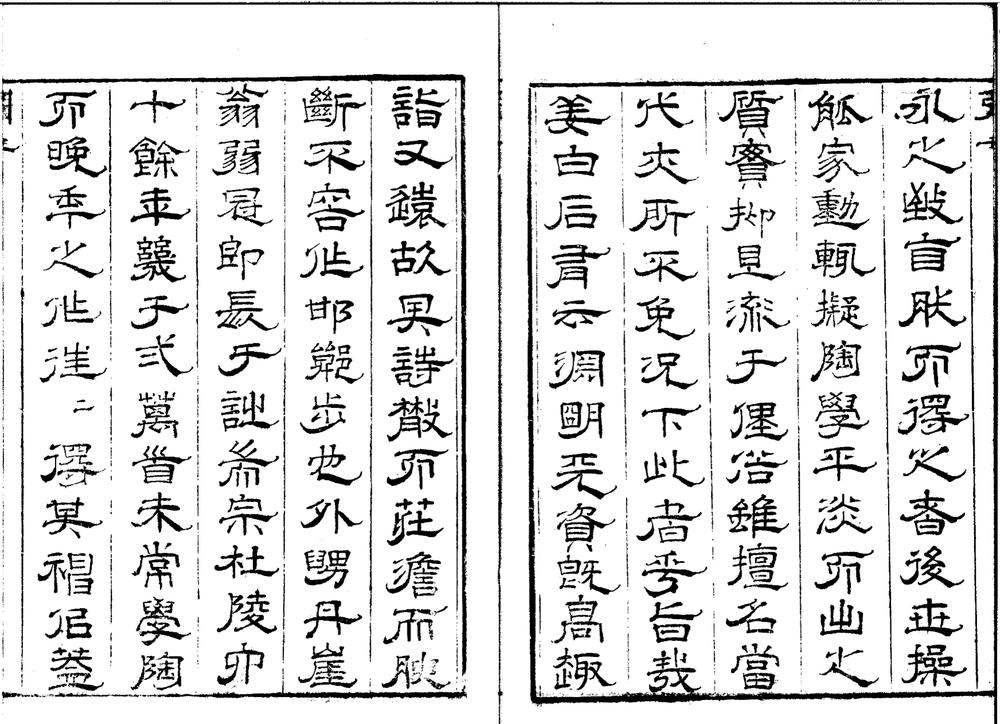 之盲然而得之者後世操
觚家動輒擬陶學平淡而出之
質實抑且流于俚俗雖擅名當
代亦所不免況下此者乎旨哉
姜白石有云淵明天資既高趣
詣又遠故其詩散而莊澹而腴
斷不容作邯鄲步也外舅丹崖
翁弱冠即長于詩希宗杜陵
十餘年于弍萬首未常學陶
而晚年之作往二得其神似蓋